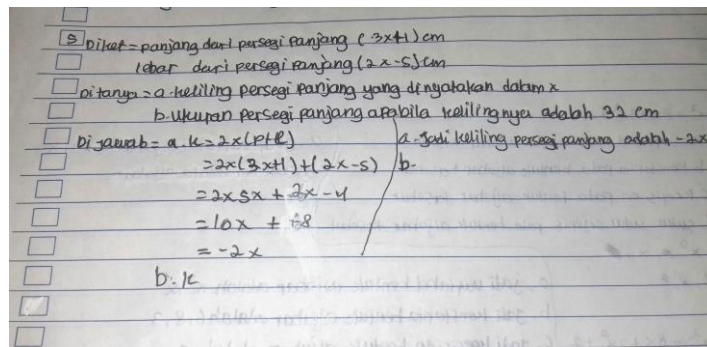 5 Diket = panjang dari persegi panjang (3x+1) cm
lebar dari persegi panjang (2x-5) cm
Ditanya = a. keliling persegi panjang yang dinyatakan dalam x
b. Ukuran persegi panjang apabila kelilingnya adalah 32 cm
Dijawab = a. k = 2x(p+l)
= 2x(3x+1)+(2x-5)
= 2x5x + -4
= 10x + -8
= -2x
b. k
a. Jadi keliling persegi panjang adalah -2x
b.